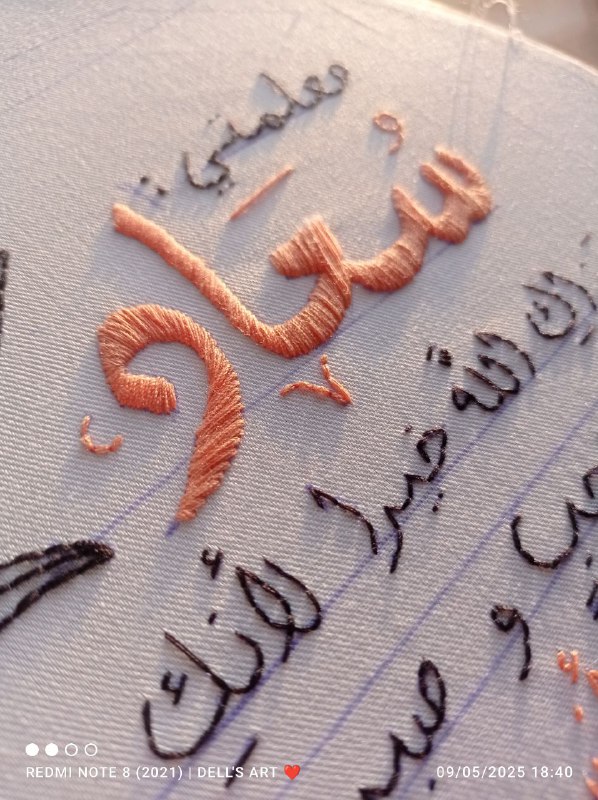 معلمتي:
سُعاد
زاك الله خيرا لأنك
و
REDMI NOTE 8 (2021) | DELL'S ART ❤️
09/05/2025 18:40